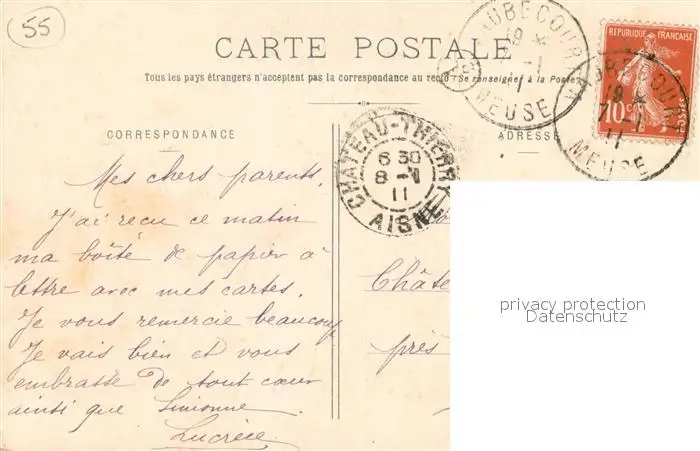 55
CARTE POSTALE
Tous les pays étrangers n'acceptent pas la correspondance au recto (Se renseigner à la Poste)
CORRESPONDANCE
ADRESSE
AUBECOURT
19 *
7 -1
11
MEUSE
REPUBLIQUE FRANÇAISE
10c
POSTES
AUBRECOURT
19 *
7 -1
11
MEUSE
CHATEAU-THIERRY
6 30
8 -1
11
AISNE
Mes chers parents,
J'ai reçu ce matin
ma boîte de papier à
lettre avec mes cartes.
Je vous remercie beaucoup
Je vais bien et vous
embrasse de tout cœur
ainsi que Simonne.
Lucrèce
Châte
près
privacy protection
Datenschutz